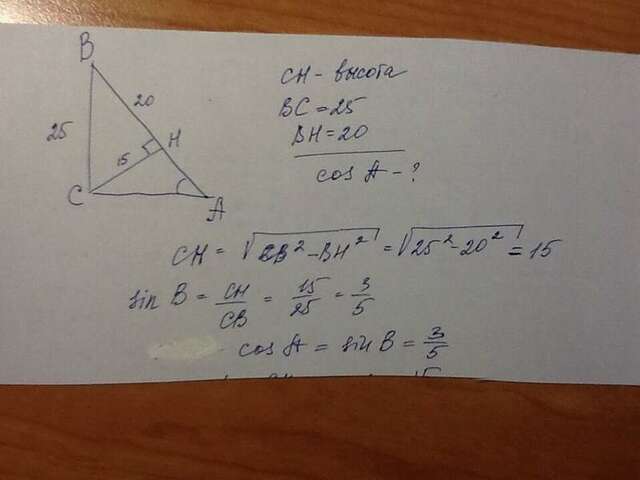 B
20
25
H
15
C
A
CH - высота
BC = 25
BH = 20
cos A - ?
CH = √CB² - BH² = √25² - 20² = 15
sin B = CH/CB = 15/25 = 3/5
cos A = sin B = 3/5